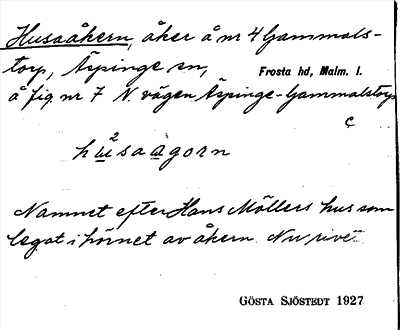 Husaåkern, åker å nr 4 Gammals-
torp, Äspinge sn, Frosta hd, Malm. l.
å fig. nr 7 N. vägen Äspinge-Gammalstorp
c
2
husaagorn
Namnet efter Hans Möllers hus som
legat i hörnet av åkern. Nu rivet.
GÖSTA SJÖSTEDT 1927